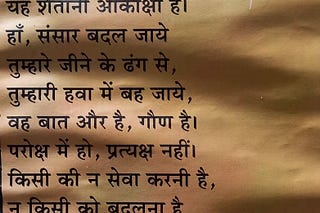 यह शैतानी आकांक्षा है।
हाँ, संसार बदल जाये
तुम्हारे जीने के ढंग से,
तुम्हारी हवा में बह जाये,
वह बात और है, गौण है।
परोक्ष में हो, प्रत्यक्ष नहीं।
किसी की न सेवा करनी है,
न किसी को बदलना है